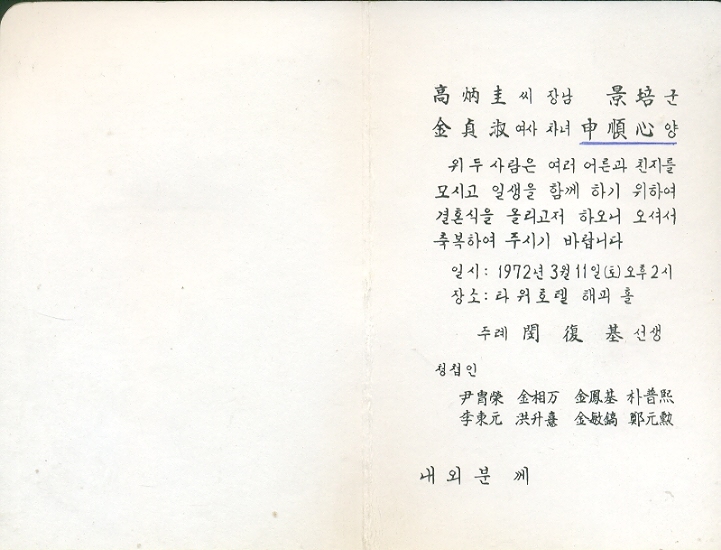 高炳圭 씨 장남 景培 군
金貞淑 여사 차녀 申順心 양
위 두 사람은 여러 어른과 친지를
모시고 일생을 함께 하기 위하여
결혼식을 올리고저 하오니 오셔서
축복하여 주시기 바랍니다
일시: 1972년 3월 11일(토)오후2시
장소: 타워호텔 해피 홀
주례 閔復基 선생
청첩인
尹胄榮 金相万 金鳳基 朴普熙
李東元 洪升憙 金敏鎬 鄭元勲
내외분 께